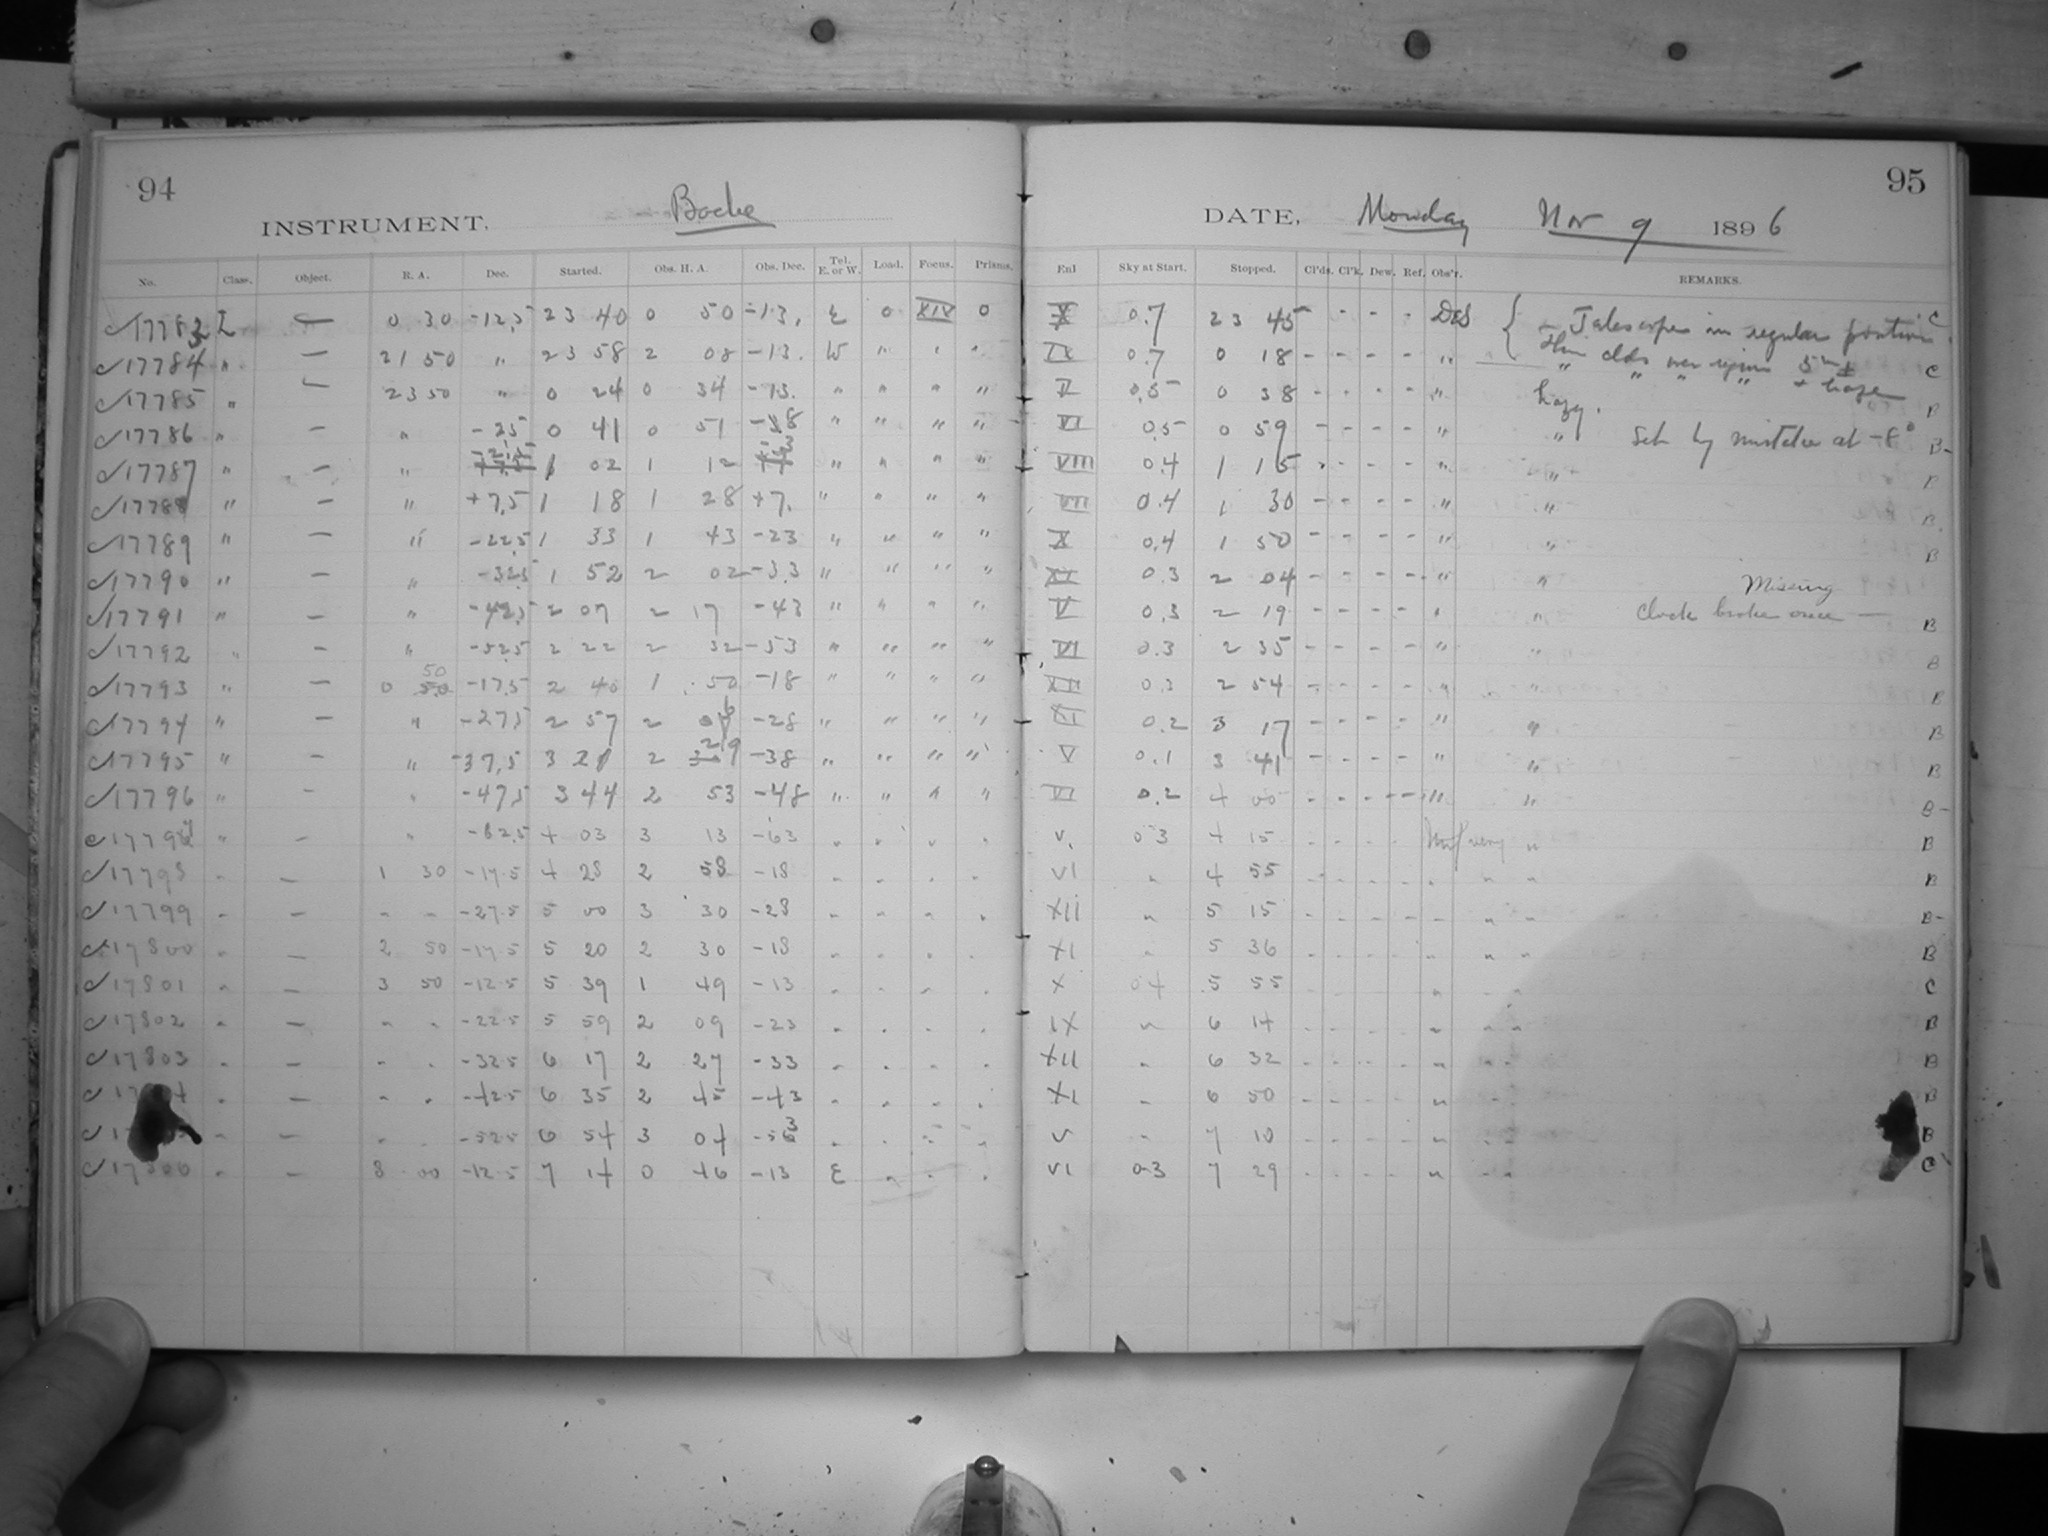 94
95
INSTRUMENT. Bache
DATE, Monday Nov 9 1896
No. Class. Object. R. A. Dec. Started. Obs. H. A. Obs. Dec. Tel. E. or W. Load. Focus. Prisms. Enl Sky at Start. Stopped. Cl'ds. Cl'k. Dew. Ref. Obs'r. REMARKS.
17783 I — 0 30 -12.5 23 40 0 50 -13. E 0 XIV 0 X 0.7 23 45 - - - DES { Telescope in regular position. C
17784 " — 21 50 " 23 58 2 08 -13. W " " " IX 0.7 0 18 - - - - " clds over region 5m± C
17785 " — 23 50 " 0 24 0 34 -13. " " " " V 0.5 0 38 - - - - " " " " " + haze B
17786 " — " -25 0 41 0 51 -18 " " " " VI 0.5 0 59 - - - - " hazy. " Set by mistake at -8° B-
17787 " — " 1 02 1 12 " " " " VIII 0.4 1 15 - - - - " " B
17788 " — " +7.5 1 18 1 28 +7. " " " " VII 0.4 1 30 - - - - " " B
17789 " — " -22.5 1 33 1 43 -23 " " " " X 0.4 1 50 - - - - " " B
17790 " — " -32.5 1 52 2 02 -33 " " " " 0.3 2 04 - - - - " " Missing
17791 " — " -42.5 2 07 2 17 -43 " " " " V 0.3 2 19 - - - - " " Clock broke once — B
17792 " — " -52.5 2 22 2 32 -53 " " " " VI 0.3 2 35 - - - - " " B
17793 " — 0 50 -17.5 2 40 1 50 -18 " " " " XII 0.3 2 54 - - - - " " B
17794 " — " -27.5 2 57 2 -28 " " " " XI 0.2 3 17 - - - - " " B
17795 " — " -37.5 3 21 2 29 -38 " " " " V 0.1 3 41 - - - - " " B
17796 " — " -47.5 3 44 2 53 -48 " " " " VI 0.2 4 00 - - - - " " B-
1779 " — " -62.5 4 03 3 13 -63 " " " " V. 0.3 4 15 - - - - very " B
17798 " — 1 30 -17.5 4 28 2 58 -18 " " " " VI " 4 55 - - - - " " " B
17799 " — " " -27.5 5 00 3 30 -28 " " " " XII " 5 15 - - - - " " " B-
17800 " — 2 50 -17.5 5 20 2 30 -18 " " " " XI " 5 36 - - - - " " " B
17801 " — 3 50 -12.5 5 39 1 49 -13 " " " " X 04 5 55 - - - - " " " C
17802 " — " " -22.5 5 59 2 09 -23 " " " " IX " 6 14 - - - - " " " B
17803 " — " " -32.5 6 17 2 27 -33 " " " " XII " 6 32 - - - - " " " B
" — " " -42.5 6 35 2 45 -43 " " " " XI " 6 50 - - - - " " " B
" — " " -52.5 6 54 3 04 -53 " " " " V " 7 10 - - - - " " " B
17806 " — 8 00 -12.5 7 14 0 46 -13 E " " " VI 0.3 7 29 - - - - " " " C